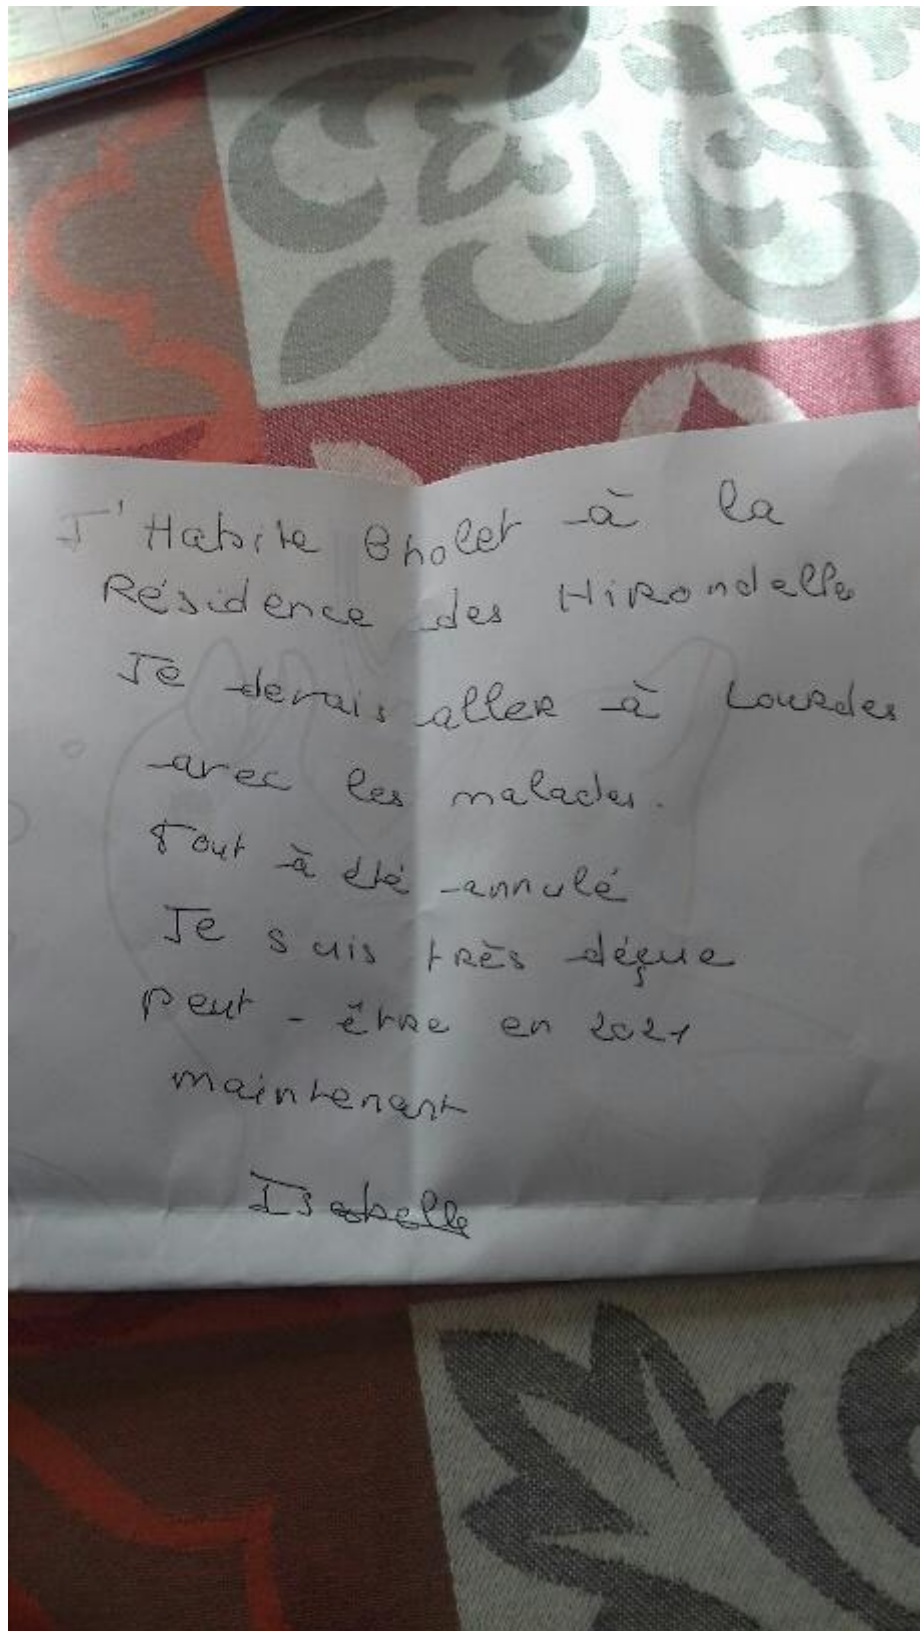 J'Habite Cholet à la
Résidence des Hirondelle
Je devais aller à Lourdes
avec les malades.
Tout à été annulé
Je suis très déçue
peut-être en 2021
maintenant
Isabelle